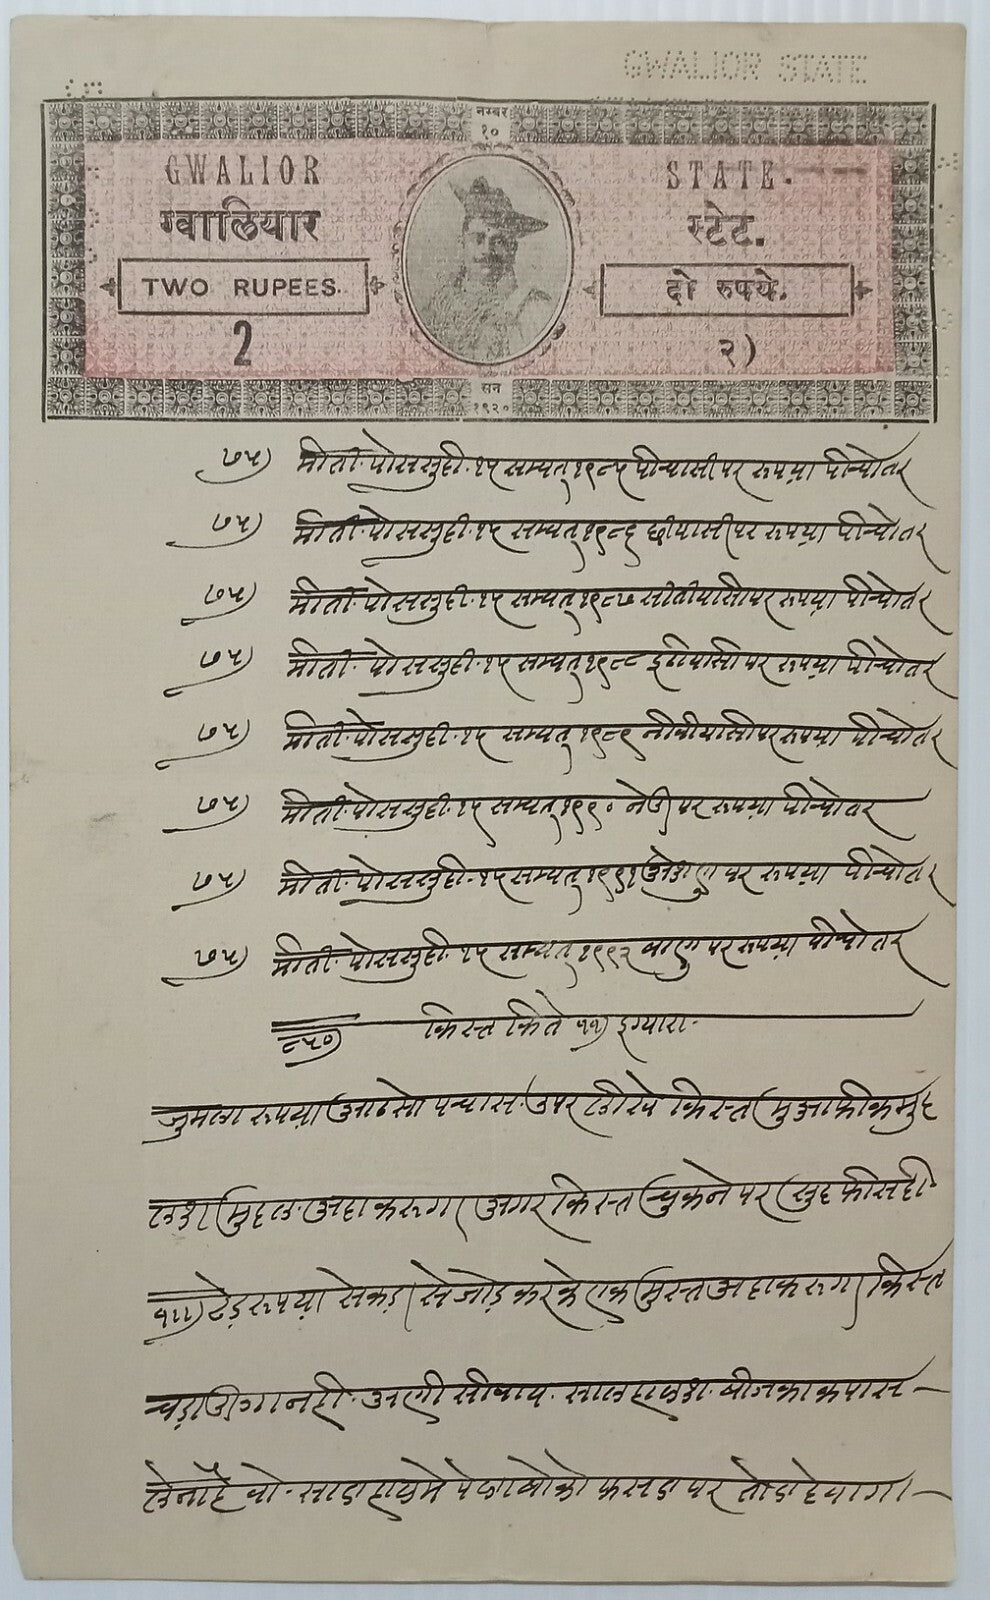 GWALIOR STATE
नम्बर
१०
GWALIOR STATE.
ग्वालियार स्टेट.
TWO RUPEES. दो रुपये.
2 २)
सन
१९२०
७५) मीती पोस सुदी १५ सम्वत् १९८५ पीच्यासी पर रूपया पीच्योतर
७५) मीती पोस सुदी १५ सम्वत् १९८६ छीयासी पर रूपया पीच्योतर
७५) मीती पोस सुदी १५ सम्वत् १९८७ सीतीयासी पर रूपया पीच्योतर
७५) मीती पोस सुदी १५ सम्वत् १९८८ इठीयासी पर रूपया पीच्योतर
७५) मीती पोस सुदी १५ सम्वत् १९८९ नीवीयासी पर रूपया पीच्योतर
७५) मीती पोस सुदी १५ सम्वत् १९९० नेउ पर रूपया पीच्योतर
७५) मीती पोस सुदी १५ सम्वत् १९९१ पर रूपया पीच्योतर
७५) मीती पोस सुदी १५ सम्वत् १९९२ पर रूपया पीच्योतर
८५०) किस्त किते ११) इग्यारा
जुमला रूपया आठसो पचास उपर लीखे किस्त मुआफीक मुद
मुद्दल अदा करूगा अगर किस्त चुकने पर सुद फीसदी
१॥) देड़ रूपया सेकड़ा से जोड़ करके एक मुस्त अदा करूगा किस्त
चड़ाउगा नही सीवाय साल कपास
लेना है वो पर देवागा